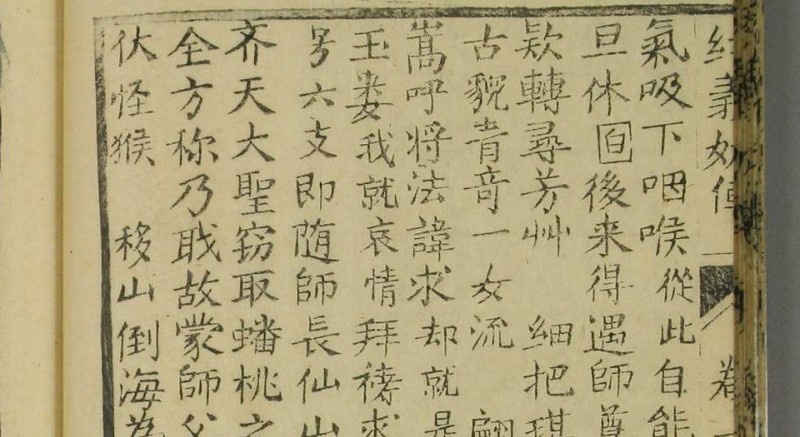 氣吸下咽喉從此自能
旦休白後来得遇師尊
欵轉尋芳艸　細把琪
古貌青竒一女流　翩
嵩呼将法諱求却就是
玉娄我就哀情拜禱求
号六支即随師長仙山
齐天大聖窃取蟠桃之
全方称乃戢故蒙師父
伏怪猴　移山倒海為